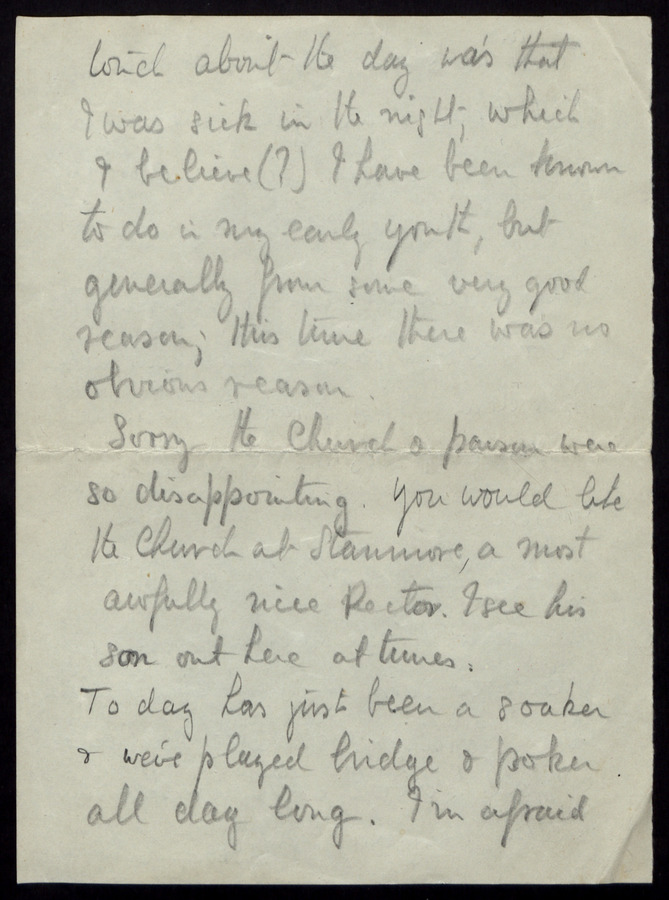 touch about the day was that
I was sick in the night, which
I believe (?) I have been known
to do in my early youth, but
generally from some very good
reason; this time there was no
obvious reason.
Sorry the Church & parson were
so disappointing. You would like
the Church at Stanmore, a most
awfully nice Rector. I see his
son out here at times.
Today has just been a soaker
& we've played bridge & poker
all day long. I'm afraid